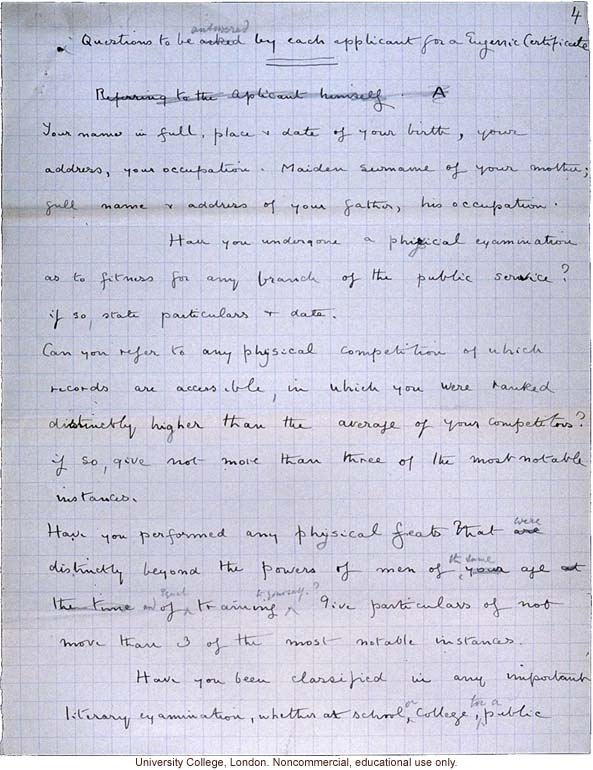 4
answered
Questions to be asked by each applicant for a Eugenic Certificate
Referring to the Aplicant himself. A
Your name in full, place & date of your birth, your
address, your occupation. Maiden Surname of your mother;
full name & address of your father, his occupation.
Have you undergone a physical examination
as to fitness for any branch of the public service?
if so, state particulars & date.
Can you refer to any physical competition of which
records are accessible, in which you were ranked
distinctly higher than the average of your competitors?
if so, give not more than three of the most notable
instances.
Have you performed any physical feats that are were
distinctly beyond the powers of men of your the same age at
the time and of equal training to yourself? Give particulars of not
more than 3 of the most notable instances.
Have you been classified in any important
literary examination, whether at school, or College, for a public
University College, London. Noncommercial, educational use only.